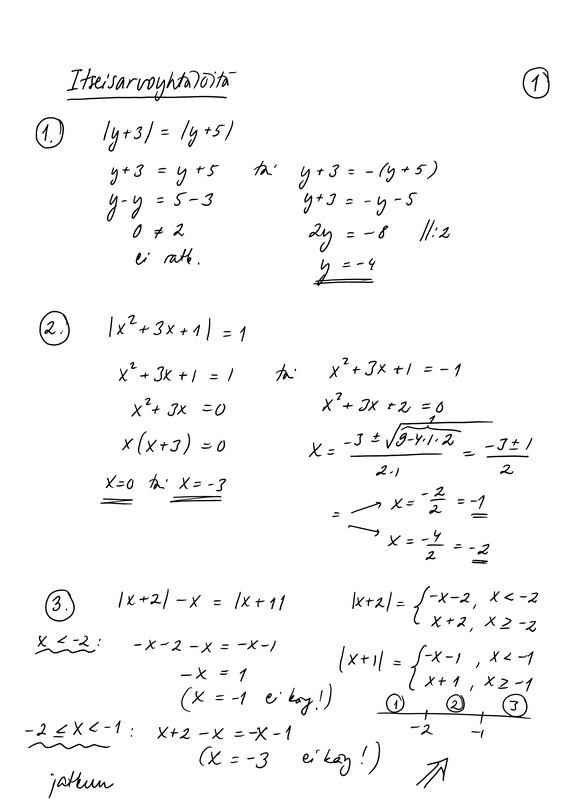 Itseisarvoyhtälöitä
1
1. |y+3| = |y+5|
y+3 = y+5 tai y+3 = -(y+5)
y-y = 5-3 y+3 = -y-5
0 ≠ 2 2y = -8 ||:2
ei ratk. y = -4
2. |x²+3x+1| = 1
x²+3x+1 = 1 tai x²+3x+1 = -1
x²+3x = 0 x²+3x+2 = 0
x(x+3) = 0 x = (-3 ± √(9-4·1·2))/(2·1) = (-3±1)/2
1
x=0 tai x=-3
= → x = -2/2 = -1
→ x = -4/2 = -2
3. |x+2| - x = |x+1| |x+2| = { -x-2, x < -2
x+2, x ≥ -2
x < -2: -x-2-x = -x-1 |x+1| = { -x-1, x < -1
-x = 1 x+1, x ≥ -1
(x = -1 ei käy!) 1 2 3
-2 -1
-2 ≤ x < -1: x+2-x = -x-1
(x = -3 ei käy!)
jatkuu